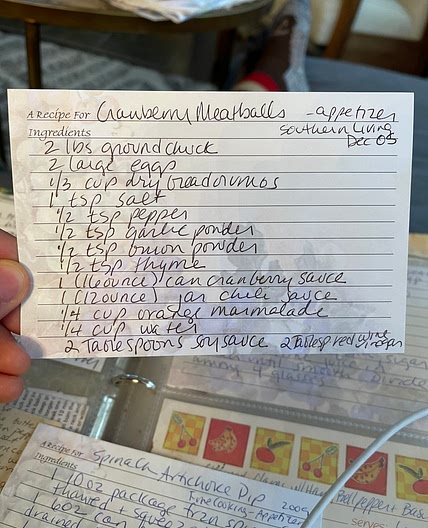 A Recipe For Cranberry Meatballs - appetizer
Ingredients Southern Living
Dec 05
2 lbs ground chuck
2 large eggs
1/3 cup dry breadcrumbs
1 tsp salt
1/2 tsp pepper
1/2 tsp garlic powder
1/2 tsp onion powder
1/2 tsp thyme
1 (16 ounce) can cranberry sauce
1 (12 ounce) jar chili sauce
1/4 cup orange marmalade
1/4 cup water
2 Tablespoons soy sauce 2 Tablesp red wine vinegar
A Recipe For Spinach Artichoke Dip
Ingredients Fine Cooking - Appetizer 2009
1 10oz package frzn
thawed + squeez
1 6oz can
drained
Bell Peppers Base
serves